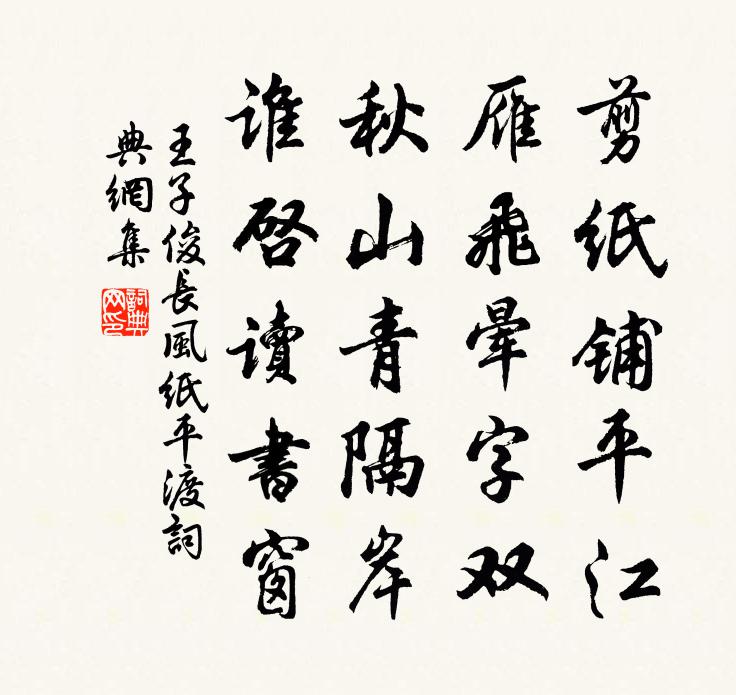 剪紙鋪平江
雁飛暈字双
秋山青隔岸
誰啓讀書窗
王子俊長風紙平渡詞
典網集
詞典
网印